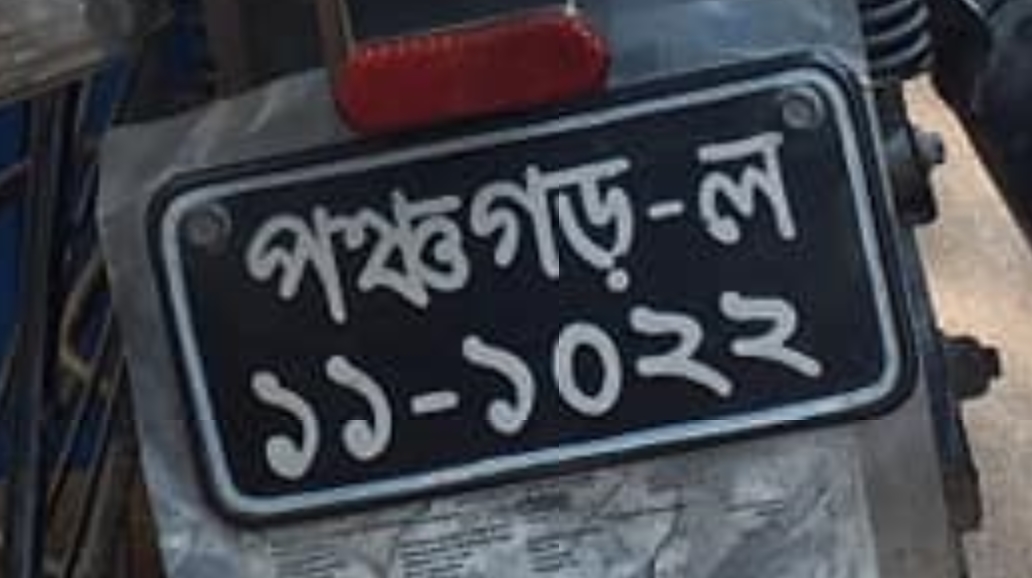 পঞ্চগড়-ল
১১-১০২২